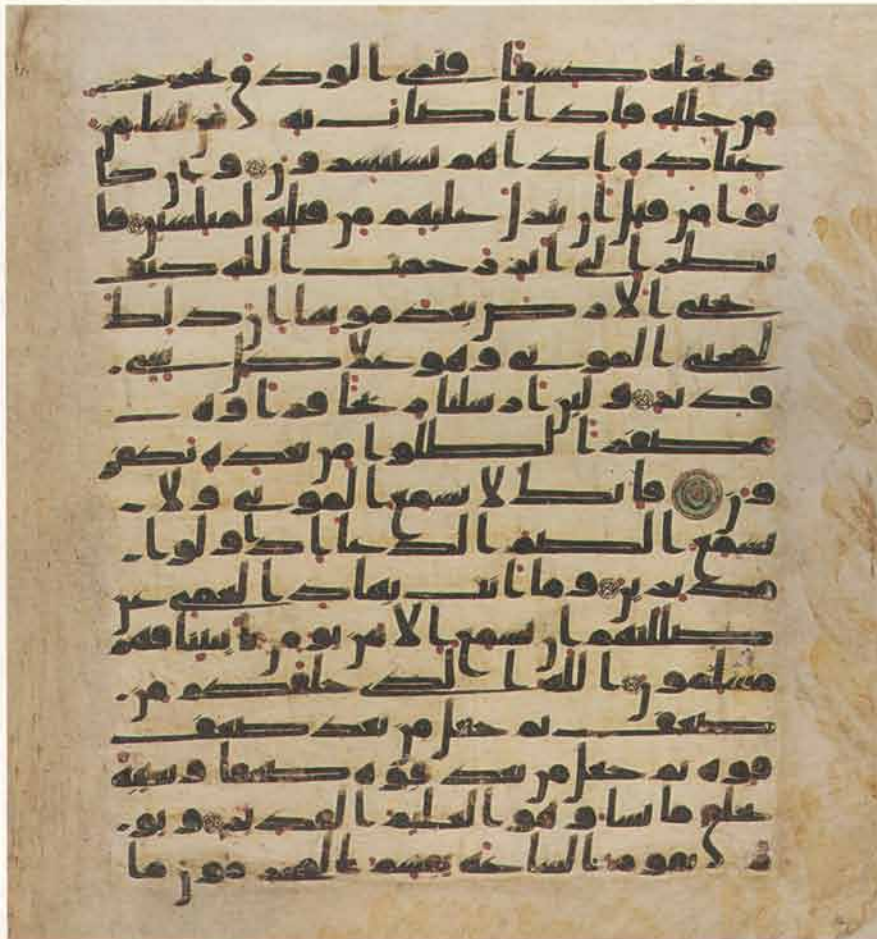 ويجعله كسفا فترى الودق يخرج
من خلله فاذا اصاب به من يشا من
عباده اذا هم يستبشرون وان كا
نوا من قبل ان ينزل عليهم من قبله لمبلسين فا
نظر الى اثر رحمت الله كيف
يحي الارض بعد موتها ان ذلك
لمحي الموتى وهو على كل شي
قدير ولئن ارسلنا ريحا فراوه
مصفرا لظلوا من بعده يكفر
ون فانك لا تسمع الموتى ولا
تسمع الصم الدعا اذا ولوا
مدبرين وما انت بهاد العمي عن
ضللتهم ان تسمع الا من يومن بايتنا فهم
مسلمون الله الذي خلقكم من
ضعف ثم جعل من بعد ضعف
قوة ثم جعل من بعد قوة ضعفا وشيبة
يخلق ما يشا وهو العليم القدير ويو
م تقوم الساعة يقسم المجرمون ما